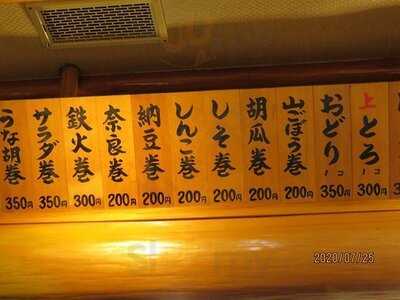 上とろ 1コ 300円
おどり 1コ 350円
山ごぼう巻 200円
胡瓜巻 200円
しそ巻 200円
しんこ巻 200円
納豆巻 200円
奈良巻 200円
鉄火巻 300円
サラダ巻 350円
うな胡巻 350円
2020/07/25